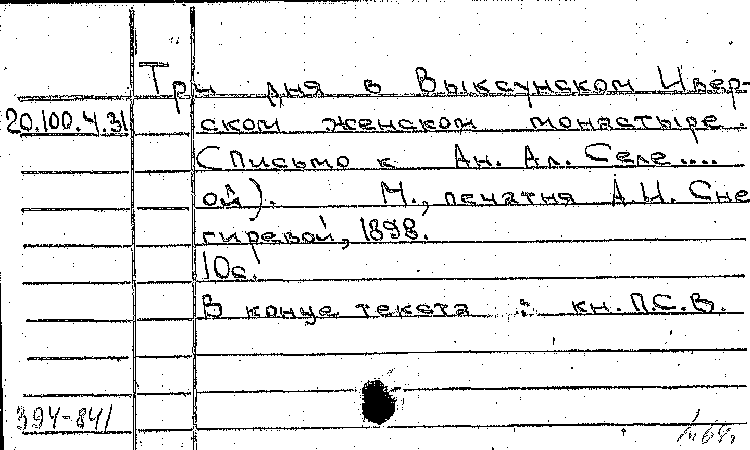 Три дня в Выксунском Ивер-
20.100.4.31 ском женском монастыре.
(Письмо к Ан. Ал. Селе....
ой). М., печатня А.И. Сне
гиревой, 1898.
10с.
В конце текста : кн. П.С.В.
394-841